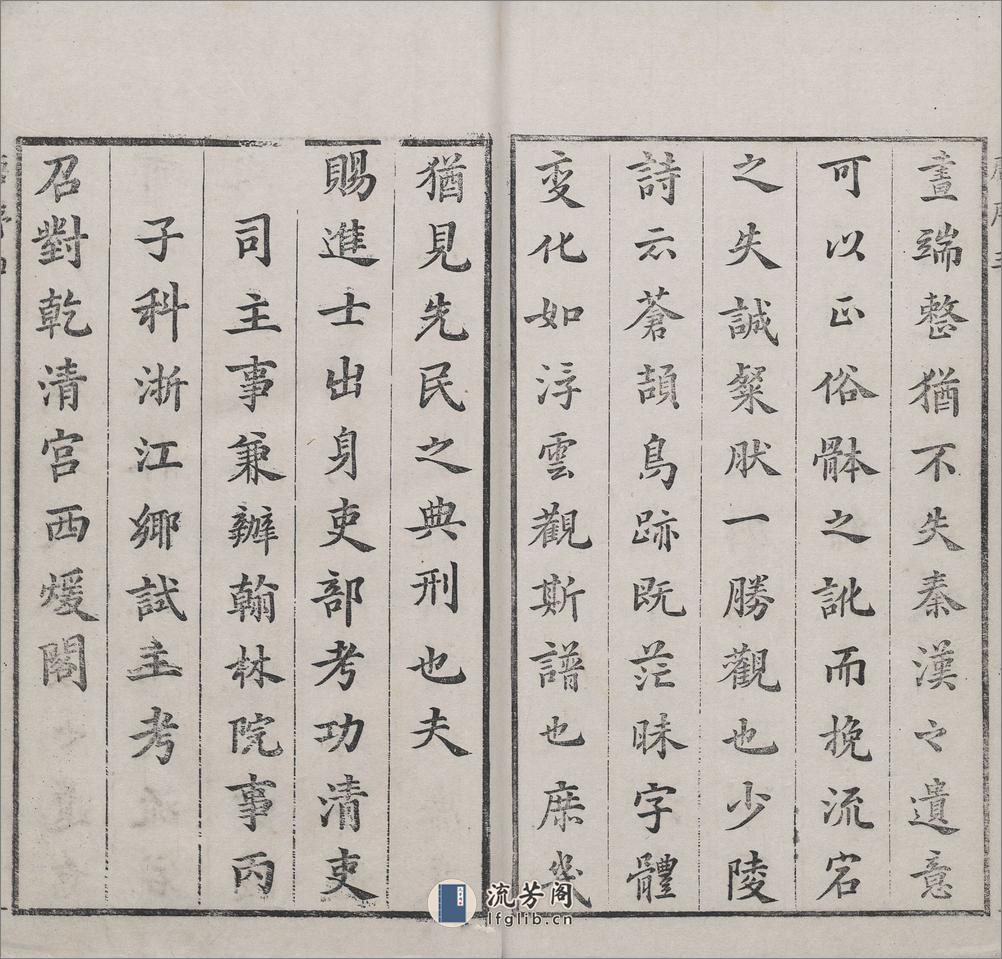 畫端整猶不失秦漢之遺意
可以正俗骵之訛而挽流宕
之失誠粲肰一勝觀也少陵
詩云蒼頡鳥跡既茫昧字體
变化如浮雲觀斯譜也庶幾
猶見先民之典刑也夫
賜進士出身吏部考功清吏
司主事兼辦翰林院事丙
子科浙江鄉試主考
召對乾清宮西煖閣
流芳阁
lfglib.cn